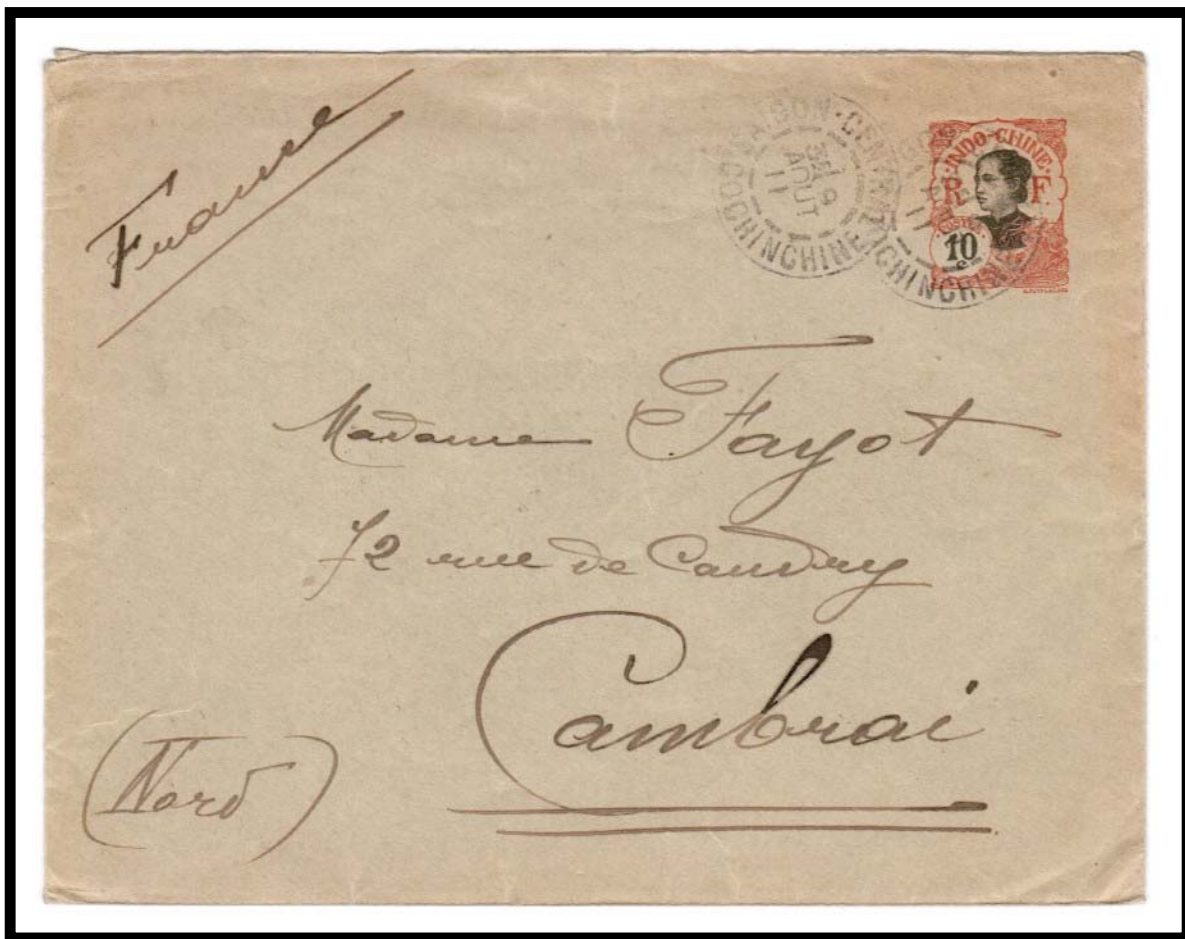 France
SAIGON-CENTRAL
9
AOUT
11
COCHINCHINE
INDO-CHINE
R F.
POSTES
10
c
CHINCHINE
Madame Fayot
72 rue de Caudry
Cambrai
(Nord)